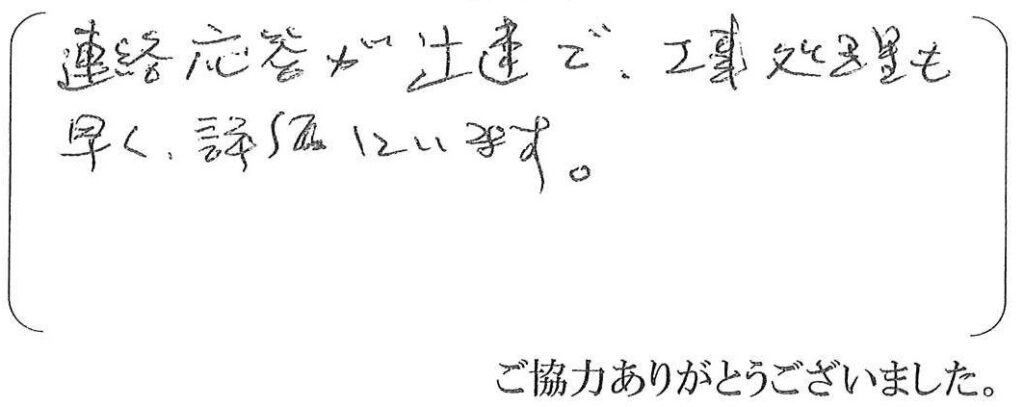 連絡応答が迅速で、工事処理も
早く、評価しています。
ご協力ありがとうございました。